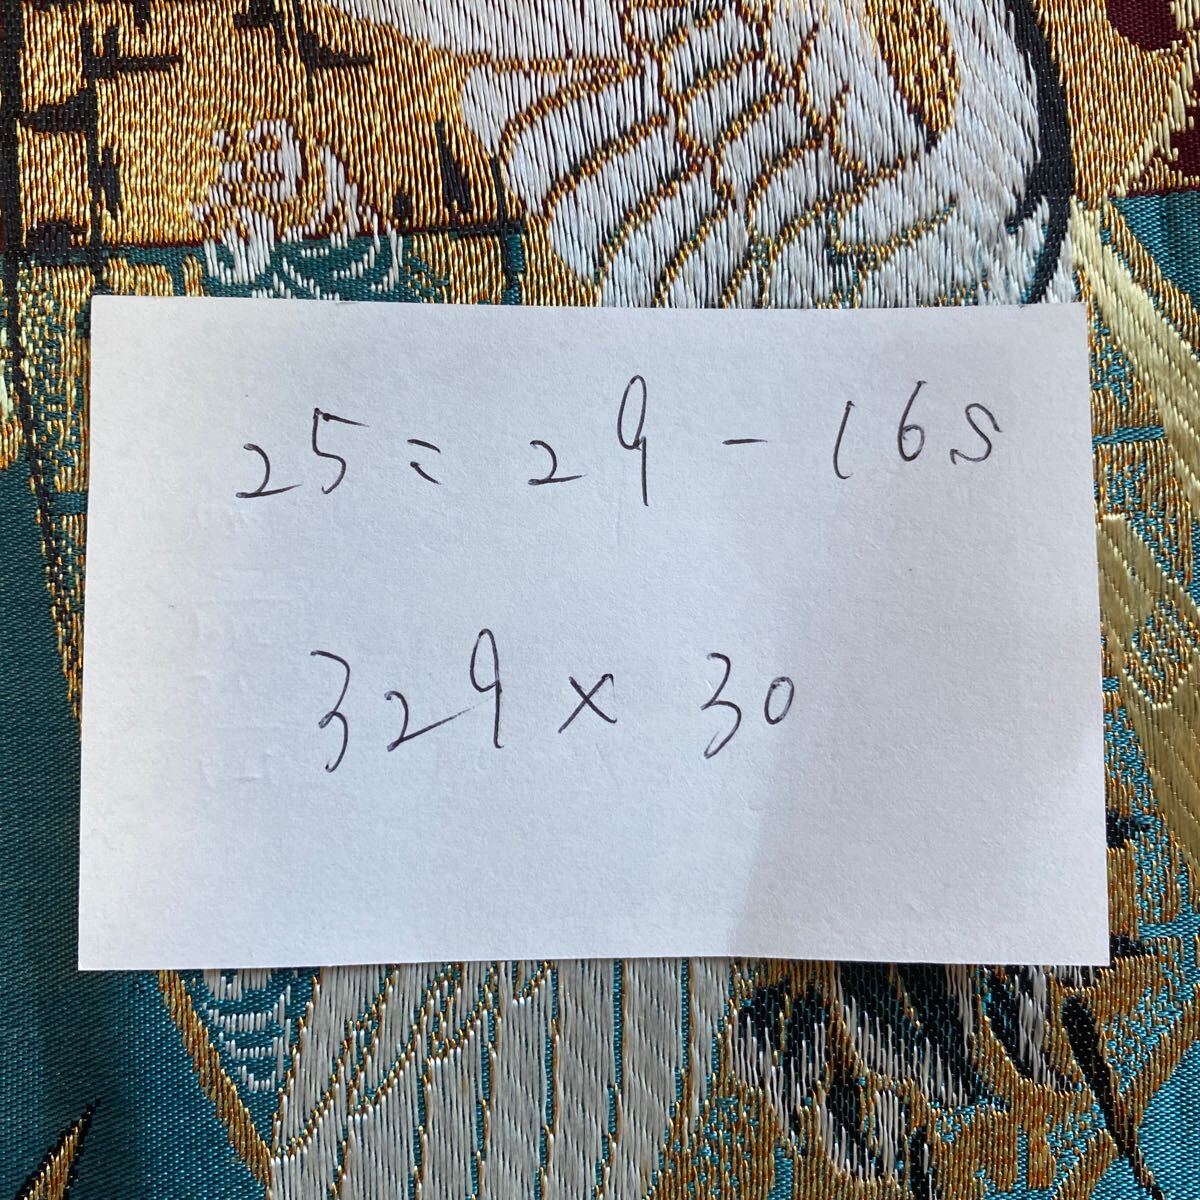 25 = 29 - 16s
329 × 30